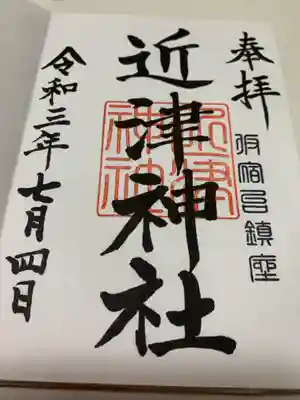 奉拝
坂宿邑鎮座
近津神社
近津神社
令和三年七月四日